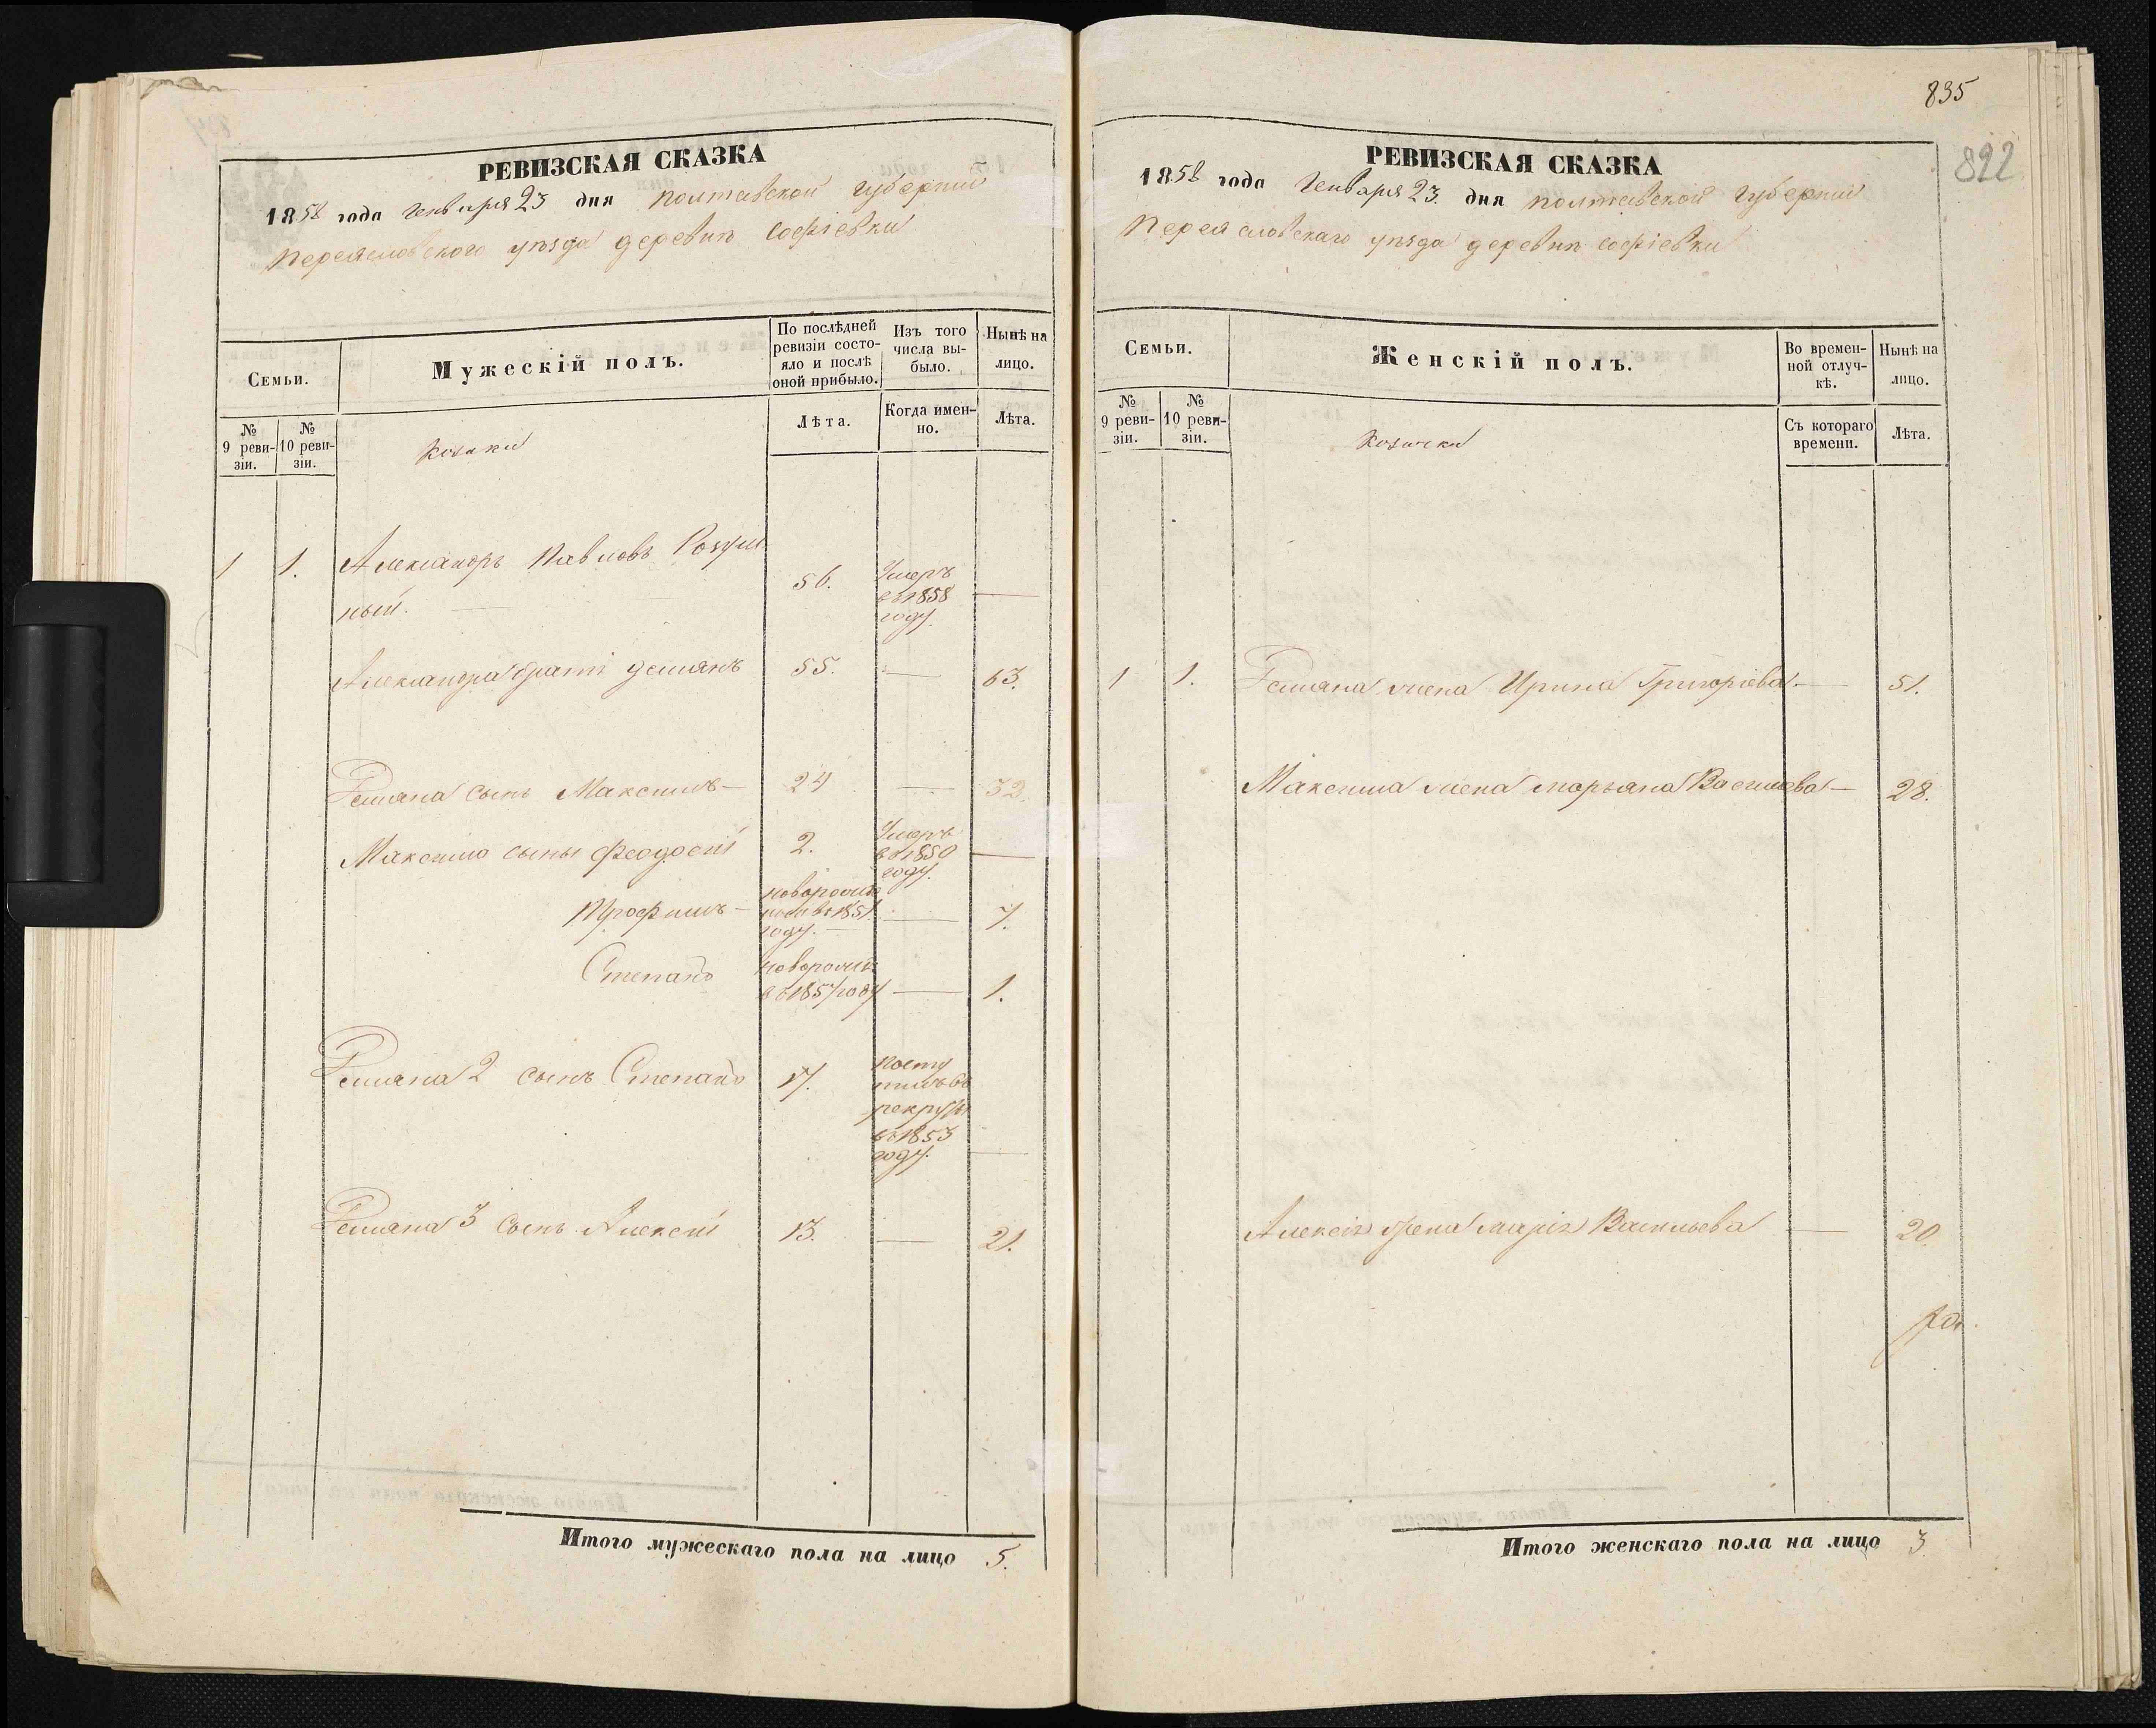 835
822
РЕВИЗСКАЯ СКАЗКА
1858 года Генваря 23 дня полтавской губернии
переясловского уѣзда деревнѣ софіевки
Семьи.
Мужескій полъ.
По послѣдней ревизіи состояло и послѣ оной прибыло.
Изъ того числа выбыло.
Нынѣ на лицо.
№ 9 ревизіи.
№ 10 ревизіи.
козаки
Лѣта.
Когда именно.
Лѣта.
1 1. Александръ Павловъ Розум
ный. 56. Умеръ въ 1858 году. —
Александра братъ демянъ 55. — 63.
Демяна сынъ Максимъ — 24 — 32.
Максима сыны Феодосій 2. Умеръ въ 1850 году. —
Трофимъ — новорожденъ въ 1851 году. — — 7.
Степанъ новорожден въ 1857 году — 1.
Демяна 2 сынъ Степанъ 17. посту
пилъ въ
рекруты
въ 1853
году. —
Демяна 3 сынъ Алексій 13. — 21.
Итого мужескаго пола на лицо 5.
РЕВИЗСКАЯ СКАЗКА
1858 года Генваря 23. дня полтавской губернии
переясловскаго уѣзда деревнѣ софіевки
Семьи.
Женскій полъ.
Во временной отлучкѣ.
Нынѣ на лицо.
№ 9 ревизіи.
№ 10 ревизіи.
козачки
Съ котораго времени.
Лѣта.
1 1. Демяна жена Ирина Григоріева — 51.
Максима жена марьяна Василева — 28.
Алексія жена марія Васильева — 20
Итого женскаго пола на лицо 3